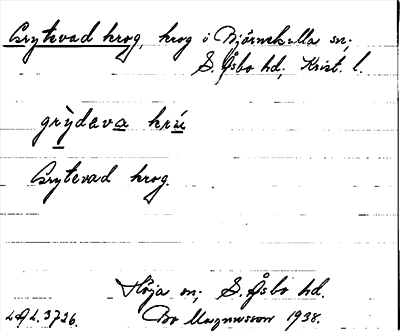 Grytevad krog, krog i Björnekulla sn;
S. Åsbo hd; Krist. l.
grỳdava krú
Grytevad krog.
Höja sn; S. Åsbo hd.
LAL. 3726. Bo Magnusson 1938.